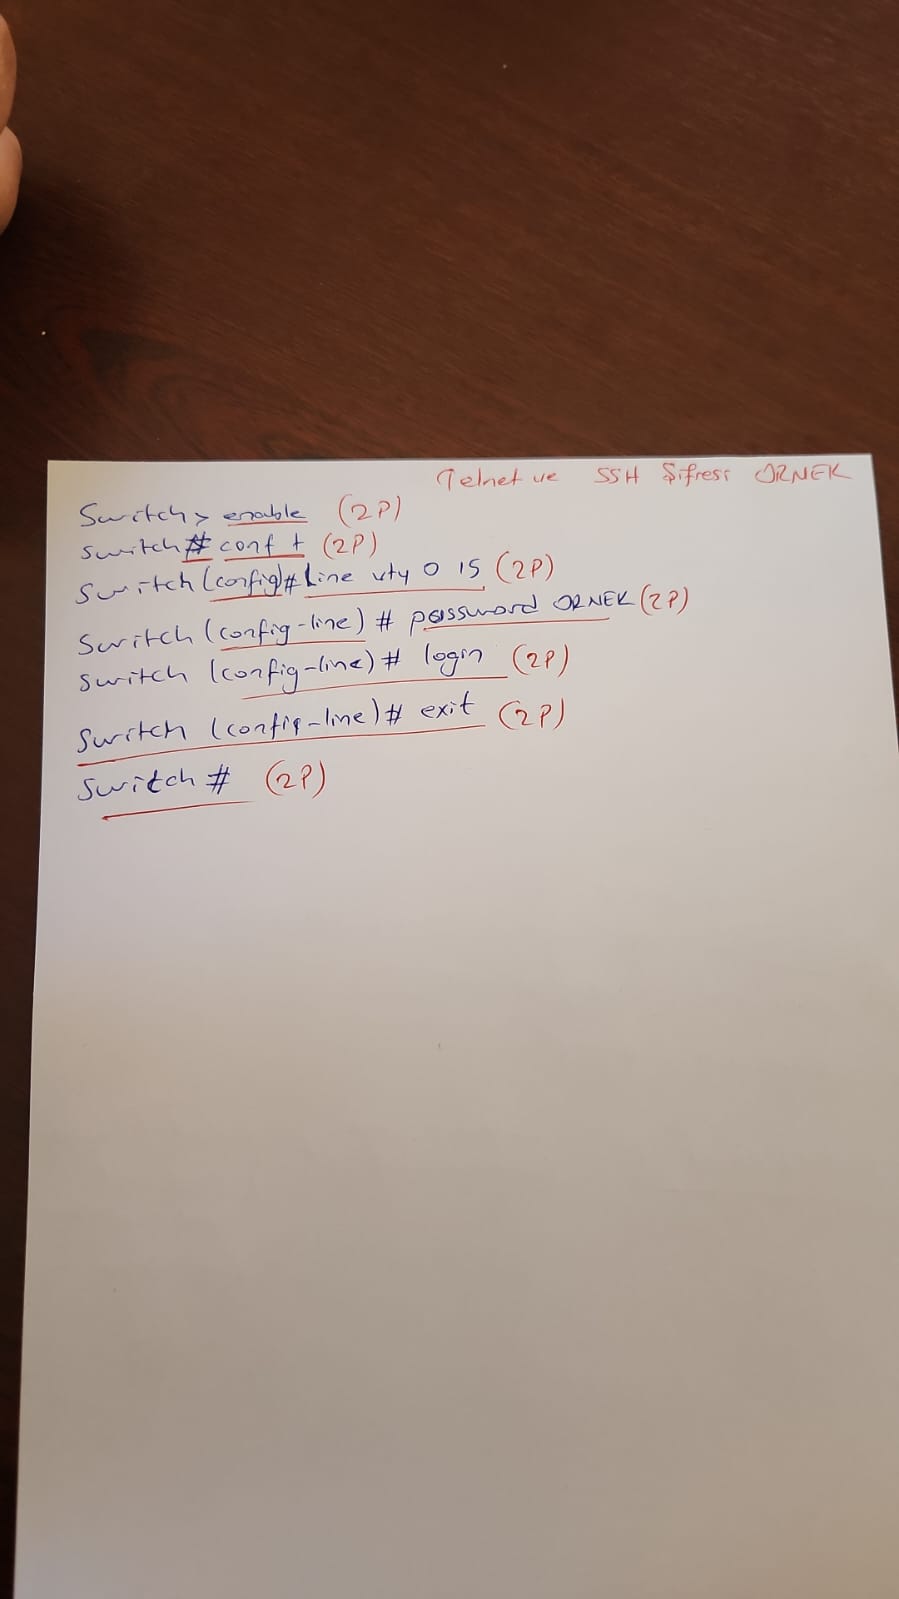 Telnet ve SSH Şifresi ORNEK
Switch> enable (2P)
Switch# conf t (2P)
Switch (config)# Line vty 0 15 (2P)
Switch (config-line) # password ORNEK (2P)
Switch (config-line) # login (2P)
Switch (config-line) # exit (2P)
Switch # (2P)